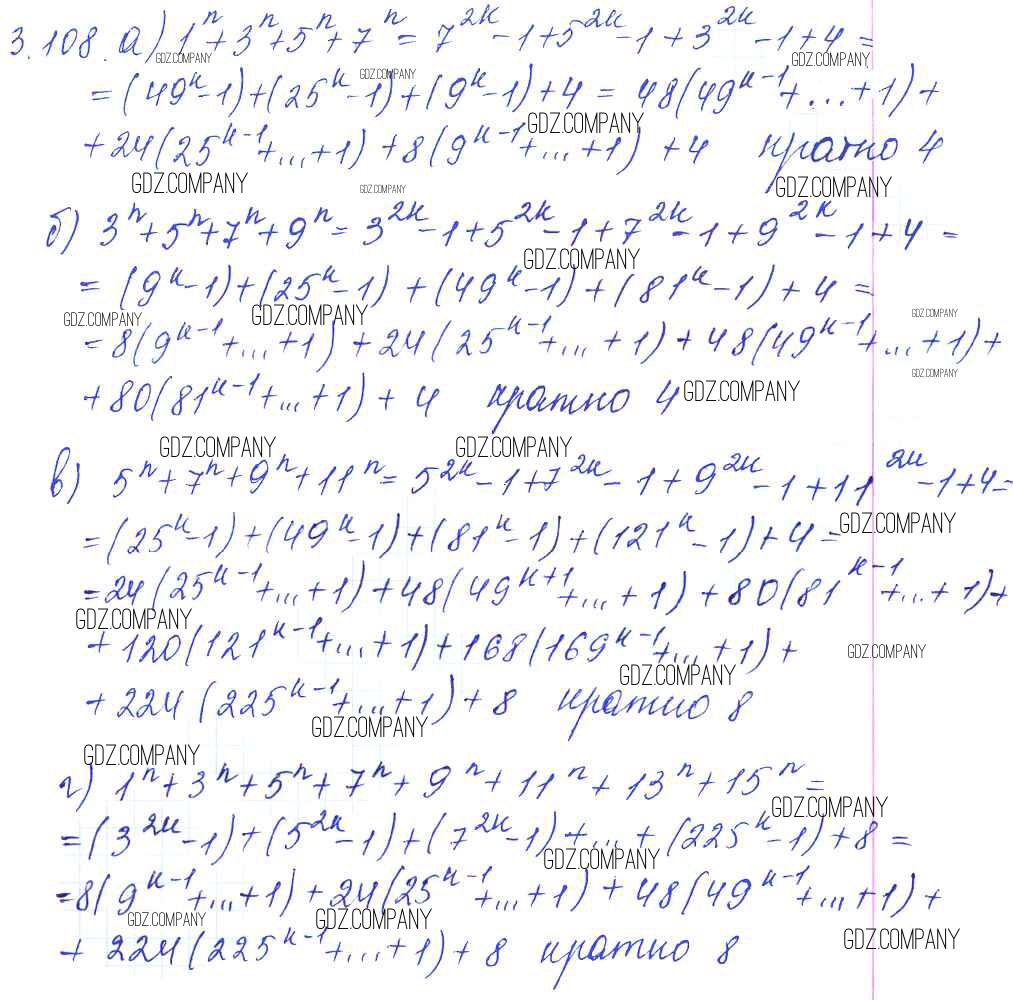 3.108. а) 1ⁿ + 3ⁿ + 5ⁿ + 7ⁿ = 7^{2k} - 1 + 5^{2k} - 1 + 3^{2k} - 1 + 4 =
GDZ.COMPANY GDZ.COMPANY
= (49^k - 1) + (25^k - 1) + (9^k - 1) + 4 = 48(49^{k-1} + ... + 1) +
GDZ.COMPANY GDZ.COMPANY
+ 24(25^{k-1} + ... + 1) + 8(9^{k-1} + ... + 1) + 4 кратно 4
GDZ.COMPANY GDZ.COMPANY GDZ.COMPANY
б) 3ⁿ + 5ⁿ + 7ⁿ + 9ⁿ = 3^{2k} - 1 + 5^{2k} - 1 + 7^{2k} - 1 + 9^{2k} - 1 + 4 =
GDZ.COMPANY
= (9^k - 1) + (25^k - 1) + (49^k - 1) + (81^k - 1) + 4 =
GDZ.COMPANY GDZ.COMPANY GDZ.COMPANY
= 8(9^{k-1} + ... + 1) + 24(25^{k-1} + ... + 1) + 48(49^{k-1} + ... + 1) +
GDZ.COMPANY
+ 80(81^{k-1} + ... + 1) + 4 кратно 4 GDZ.COMPANY
GDZ.COMPANY GDZ.COMPANY
в) 5ⁿ + 7ⁿ + 9ⁿ + 11ⁿ = 5^{2k} - 1 + 7^{2k} - 1 + 9^{2k} - 1 + 11^{2k} - 1 + 4 =
GDZ.COMPANY
= (25^k - 1) + (49^k - 1) + (81^k - 1) + (121^k - 1) + 4 =
= 24(25^{k-1} + ... + 1) + 48(49^{k+1} + ... + 1) + 80(81^{k-1} + ... + 1) +
GDZ.COMPANY
+ 120(121^{k-1} + ... + 1) + 168(169^{k-1} + ... + 1) +
GDZ.COMPANY GDZ.COMPANY
+ 224(225^{k-1} + ... + 1) + 8 кратно 8
GDZ.COMPANY
GDZ.COMPANY
г) 1ⁿ + 3ⁿ + 5ⁿ + 7ⁿ + 9ⁿ + 11ⁿ + 13ⁿ + 15ⁿ =
GDZ.COMPANY
= (3^{2k} - 1) + (5^{2k} - 1) + (7^{2k} - 1) + ... + (225^k - 1) + 8 =
GDZ.COMPANY
= 8(9^{k-1} + ... + 1) + 24(25^{k-1} + ... + 1) + 48(49^{k-1} + ... + 1) +
GDZ.COMPANY GDZ.COMPANY
+ 224(225^{k-1} + ... + 1) + 8 кратно 8
GDZ.COMPANY